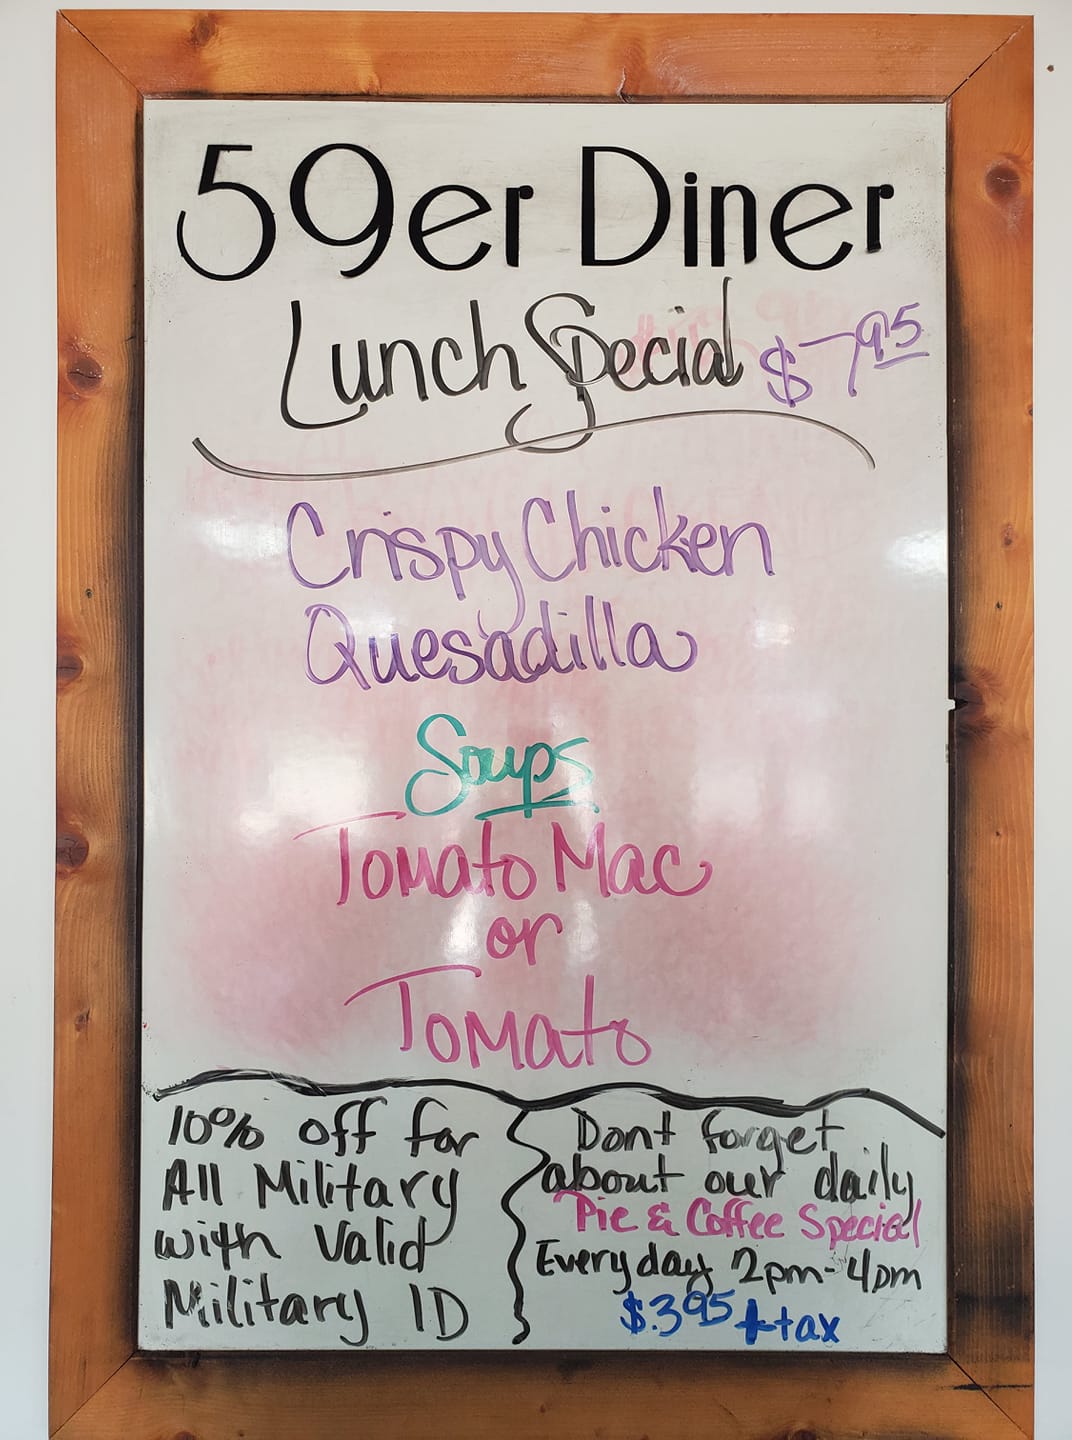 59er Diner
Lunch Special $7.95
Crispy Chicken
Quesadilla
Soups
Tomato Mac
or
Tomato
10% off for
All Military
with Valid
Military ID
Dont forget
about our daily
Pie & Coffee Special
Everyday 2pm-4pm
$3.95 + tax